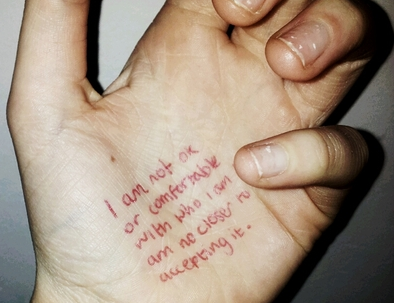 I am not ok
or comfortable
with who I am
am no closer to
accepting it.